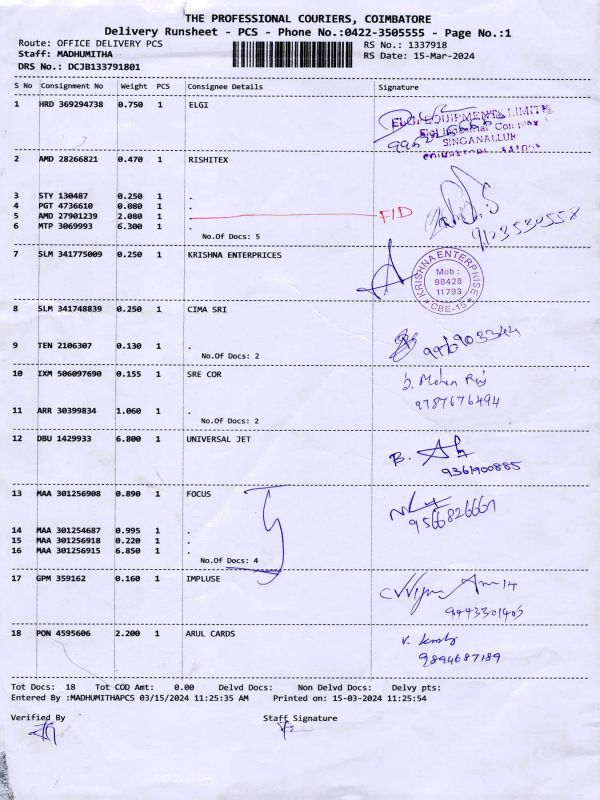 THE PROFESSIONAL COURIERS, COIMBATORE
Delivery Runsheet - PCS - Phone No.:0422-3505555 - Page No.:1
Route: OFFICE DELIVERY PCS
RS No.: 1337918
Staff: MADHUMITHA
RS Date: 15-Mar-2024
DRS No.: DCJB133791801
S No Consignment No Weight PCS Consignee Details Signature
1 HRD 369294738 0.750 1 ELGI
ELGI EQUIPMENTS LIMITED
SINGANALLUR
2 AMD 28266821 0.470 1 RISHITEX
3 STY 130487 0.250 1 .
4 PGT 4736610 0.080 1 .
5 AMD 27901239 2.080 1 . F/D
6 MTP 3069993 6.300 1 .
No.Of Docs: 5
9123530558
7 SLM 341775009 0.250 1 KRISHNA ENTERPRICES
KRISHNA ENTERPRISE
Mob :
98428
11793
CBE-15
8 SLM 341748839 0.250 1 CIMA SRI
9 TEN 2106307 0.130 1 .
No.Of Docs: 2
10 IXM 506097690 0.155 1 SRE COR
9787676494
11 ARR 30399834 1.060 1 .
No.Of Docs: 2
12 DBU 1429933 6.800 1 UNIVERSAL JET
B.
9361900885
13 MAA 301256908 0.890 1 FOCUS
9566826661
14 MAA 301254687 0.995 1 .
15 MAA 301256918 0.220 1 .
16 MAA 301256915 6.850 1 .
No.Of Docs: 4
17 GPM 359162 0.160 1 IMPLUSE
9443301403
18 PON 4595606 2.200 1 ARUL CARDS
9894687189
Tot Docs: 18 Tot COD Amt: 0.00 Delvd Docs: Non Delvd Docs: Delvy pts:
Entered By :MADHUMITHAPCS 03/15/2024 11:25:35 AM Printed on: 15-03-2024 11:25:54
Verified By Staff Signature